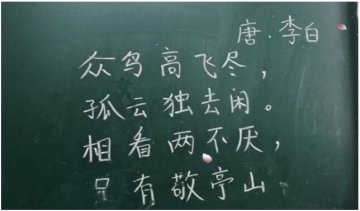 唐.李白
众鸟高飞尽，
孤云独去闲。
相看两不厌，
只有敬亭山